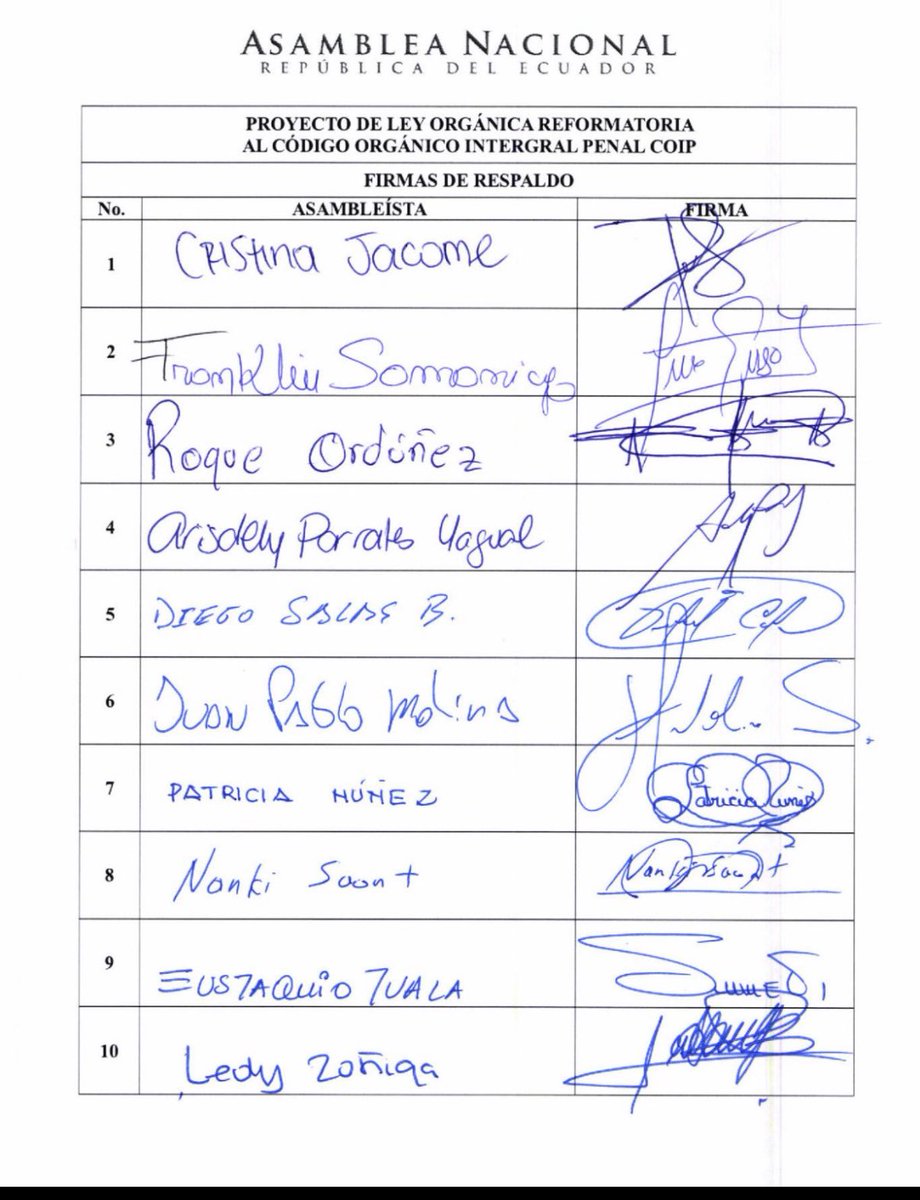 ASAMBLEA NACIONAL
REPÚBLICA DEL ECUADOR
PROYECTO DE LEY ORGÁNICA REFORMATORIA
AL CÓDIGO ORGÁNICO INTERGRAL PENAL COIP
FIRMAS DE RESPALDO
No. ASAMBLEÍSTA FIRMA
1 CRISTINA Jacome
2 Franklin Samaniego
3 Roque Ordóñez
4 Arisdely Parrales Yagual
5 DIEGO SALAS B.
6 JUAN PABLO MOLINA
7 PATRICIA NÚÑEZ Patricia Nuñez
8 Nanki Saant Nanki Saant
9 EUSTAQUIO TUALA
10 Ledy Zúñiga